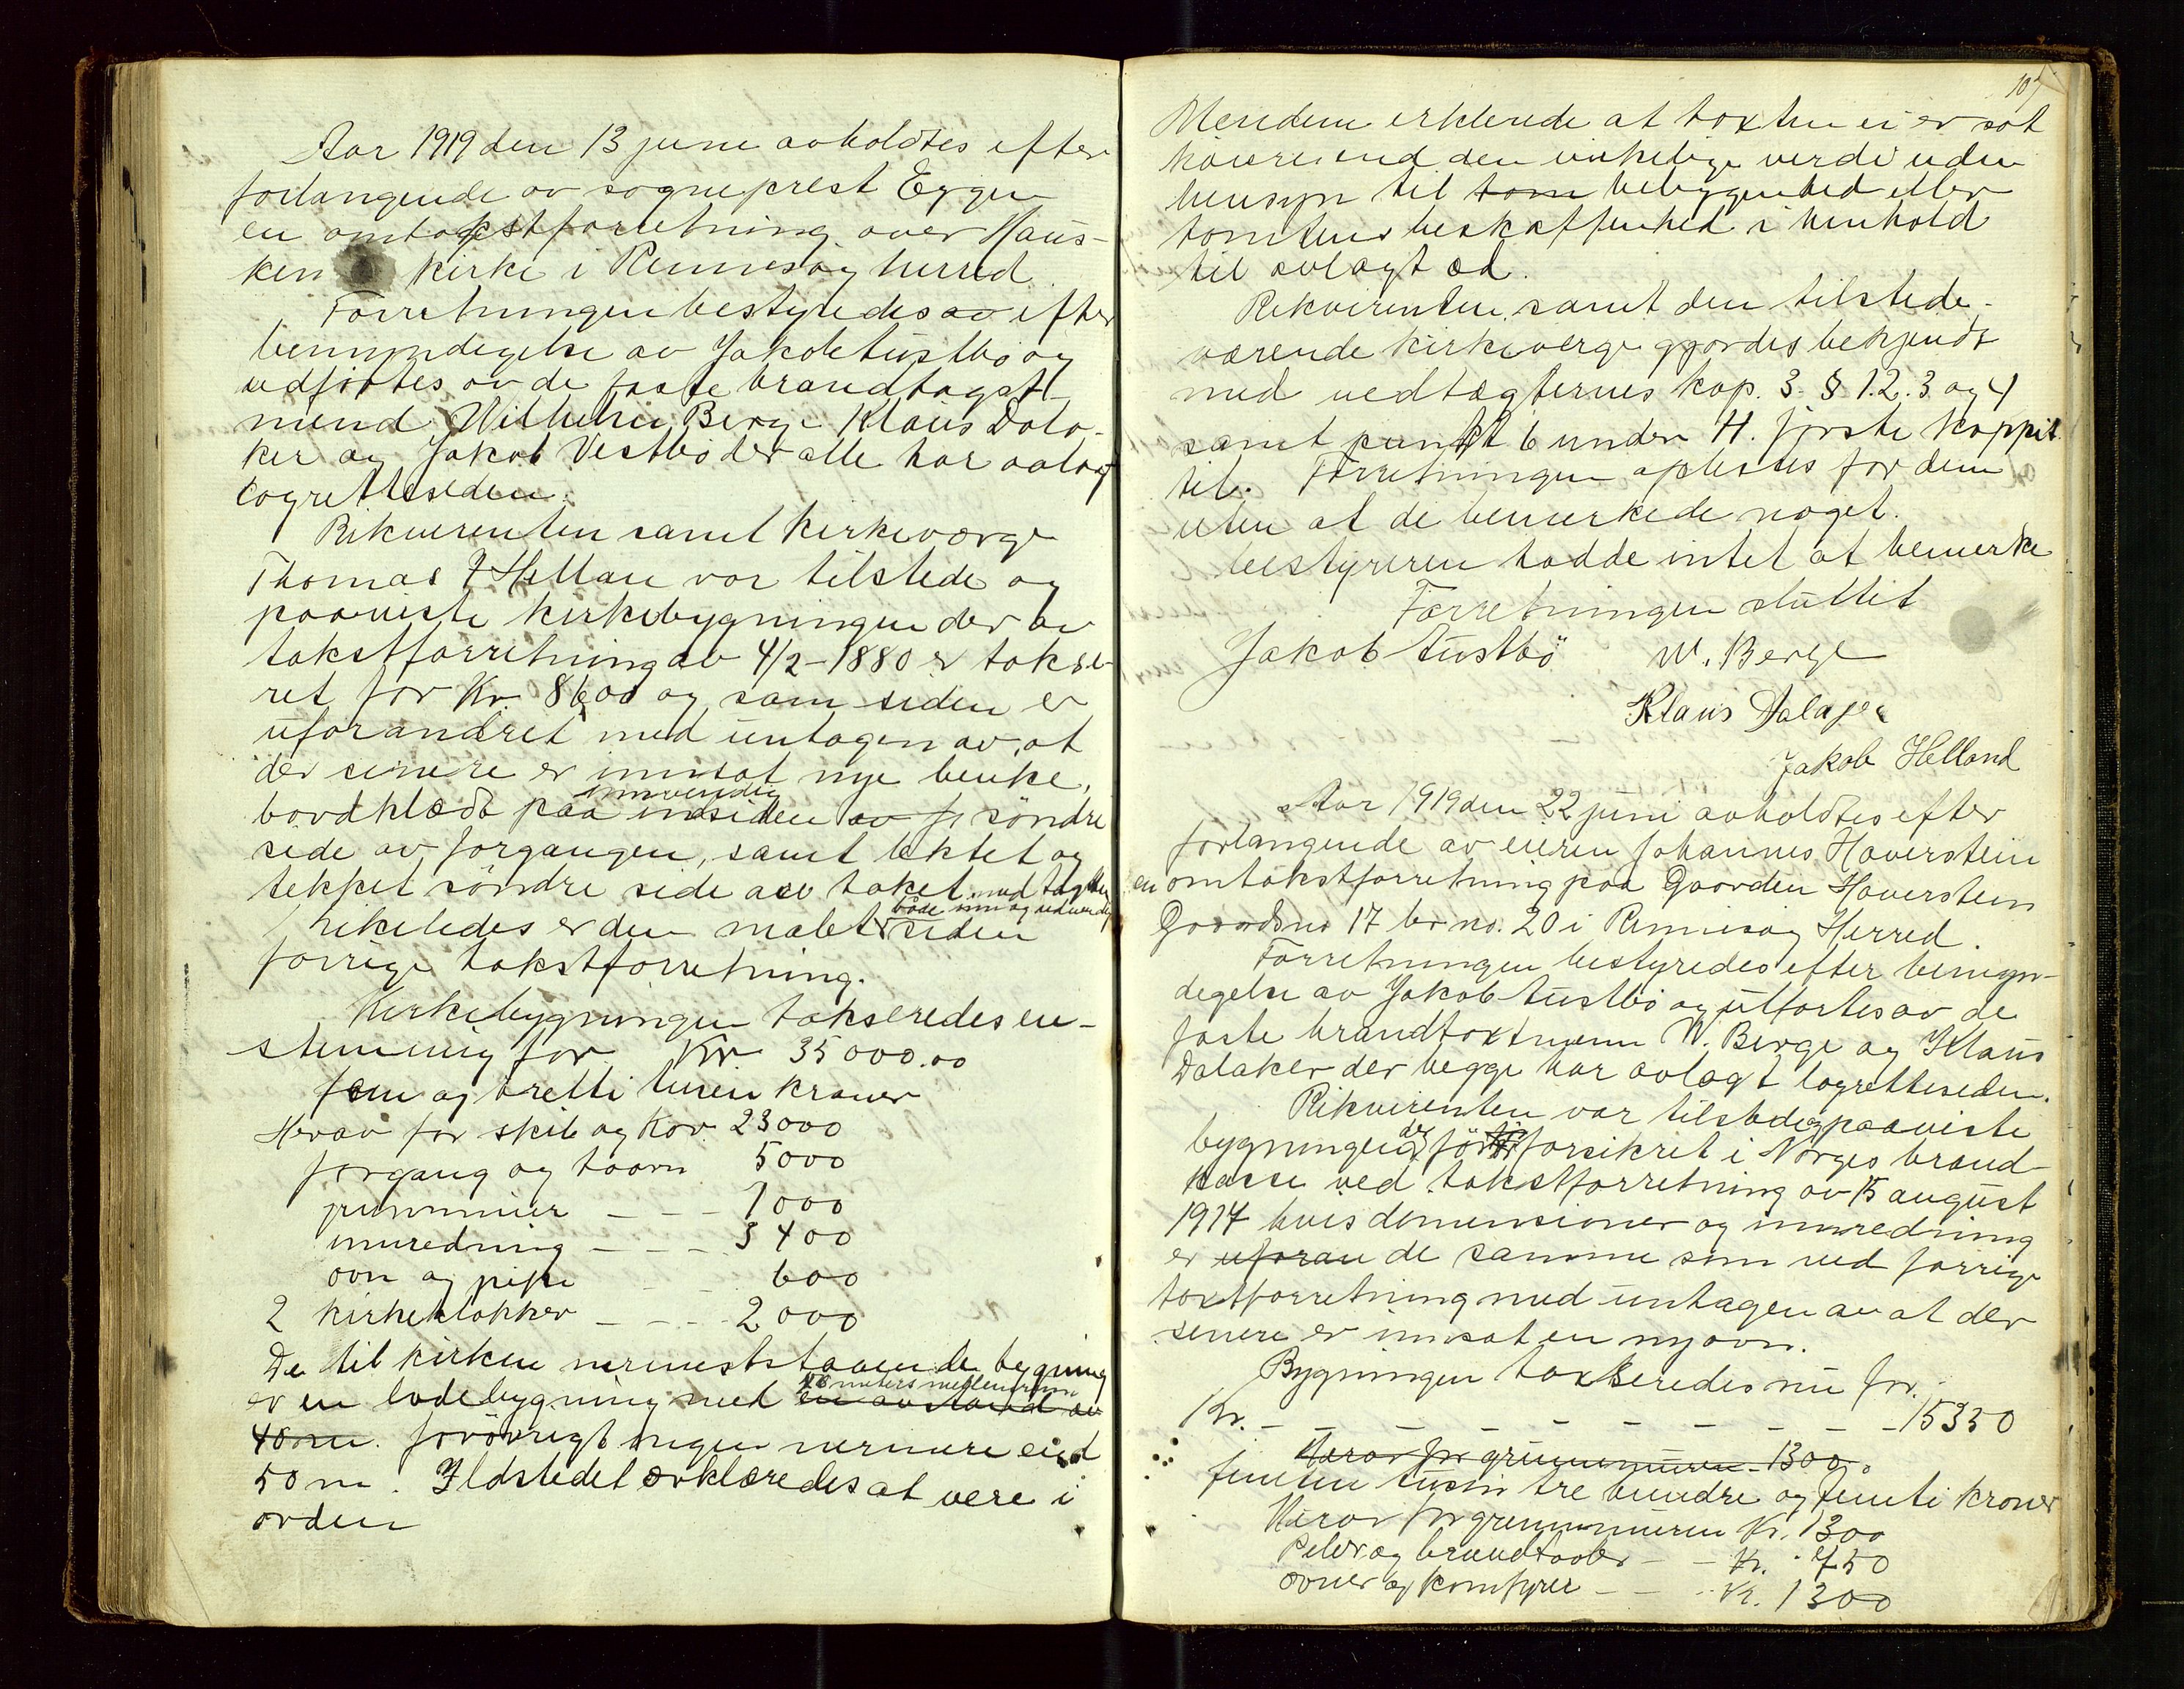 Aar 1919 den 13 juni avholdtes efter
forlangende av sogneprest Eggen
en omtakstforretning over Haus-
ken kirke i Rennesøy herred.
Forretningen bestyredes av efter
bemyndigelse av Jakob Tustbö og
udførtes av de faste brandtagst-
mend Wilhelm Berge Klaus Dala-
ker og Jakob Vestbö der alle har avlagt
lagretteseden.
Rikvirenten samt kirkeværge
Thomas T Helland var tilstede og
paaviste kirkebygningen der av
takstforretning av 4/2-1880 er takse
ret for Kr. 8600 og som siden er
uforandret med untagen av at
der senere er innsat nye benke,
bordklædt paa indsiden av f søndre
innvendig
side av forgangen, samt lektet og
tekket söndre side av taket med tagsten
både inn og udvendig
Likeledes er den malet siden
forrige takstforretning.
Kirkebygningen takseredes en-
stemmig for Kr 35000.00
fem og tretti tusen kroner
Herav for skib og kor 23000
forgang og taarn 5000
grunnmur - - - 1000
innredning - - - 3400
ovn og pipe - - 600
2 kirkeklokker - - - 2000
De til kirken nermeststaaende bygning
40 meters mellemrum
er en lodebygning med en avstand av
40 m. forövrigt ingen nermere end
50 m. Ildstedet erklæredes at være i
orden
107
Mendene erklerede at taxten ei er sat
høiere end den virkelige verdi uden
hensyn til tom bebyggenhed eller
tomtens beskaffenhed i henhold
til avlagt ed.
Rekvirenten samt den tilstede-
værende kirkeverge gjordes bekjendt
med vedtægternes kap. 3 § 1.2.3 og 4
samt punkt 6 under H. første kappit
til. Forretningen oplestes for dem
uten at de bemerkede noget.
bestyreren hadde intet at bemerke
Forretningen sluttet
Jakob Tustbö W. Berge
Klaus Dalager
Jakob Helland
Aar 1919 den 22 juni avholdtes efter
forlangende av eieren Johannes Haverstein
en omtakstforretning paa Gaarden Haverstein
Gaardsno 17 br no. 20 i Rennesøy Herred.
Forretningen bestyredes efter bemyn-
degelse av Jakob Tustbö og utførtes av de
faste brandtaxtmenn W. Berge og Klaus
Dalaker der begge har avlagt lagretteseden.
Rikvirenten var tilstede og paaviste
bygningen der för forsikret i Norges brand-
kasse ved takstforretning av 15 august
1917 hvis demensioner og innredning
er uforan de samme som ved forrige
taxtforretning med untagen av at der
senere er innsat en ny ovn.
Bygningen taxseredes nu for.
Kr. - - - - - - - - - 15350
Herav for grunnmuren 1300.
femten tusen tre hundre og femti kroner
Herav for grunnmuren Kr. 1300
Peler og brandtavler - - Kr. 750
ovner og komfyrer - - - Kr. 1300